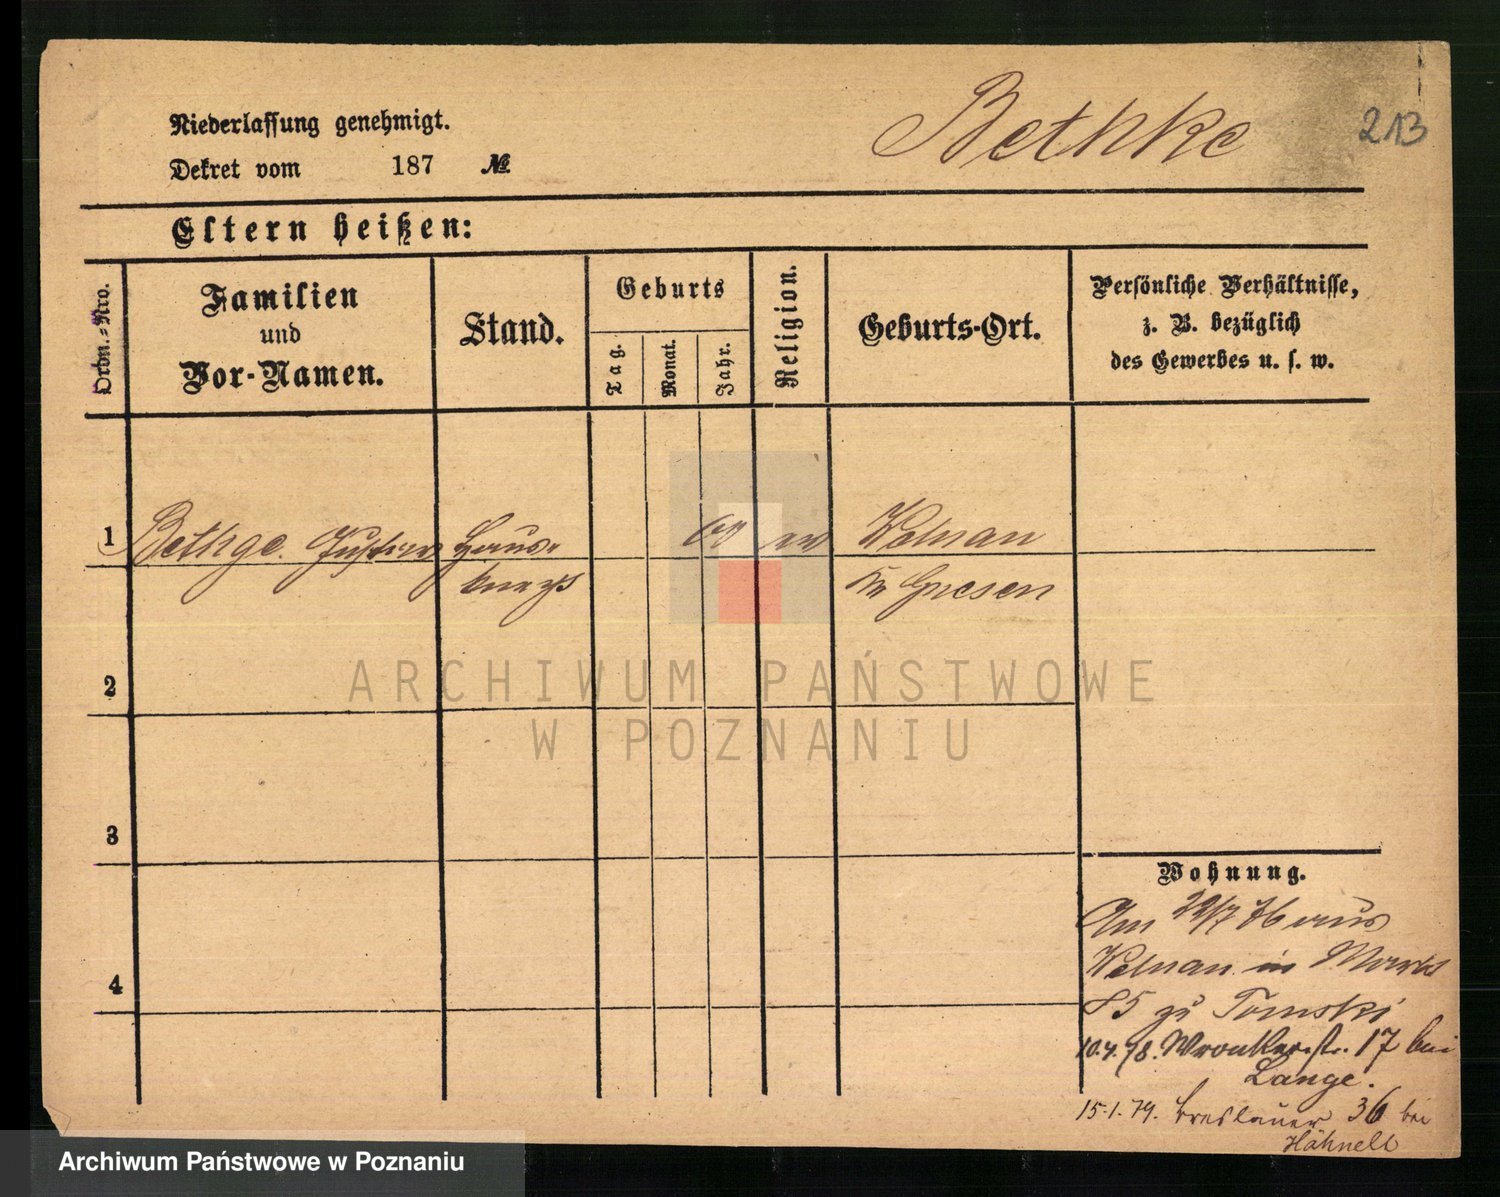 Bethke
213
Niederlassung genehmigt.
Dekret vom 187 №
Eltern heißen:
Ordn.-Nro.
Familien
und
Vor-Namen.
Stand.
Geburts
Tag.
Monat.
Jahr.
Religion.
Geburts-Ort.
Persönliche Verhältnisse,
z. B. bezüglich
des Gewerbes u. s. w.
1 Bethge. Gustav Haus- ev Welnau
knecht Kr Gnesen
2
3
4
Wohnung.
Am 22/7 76 aus
Welnau in Markt
85 zu Tomski
10.4.78. Wronkerstr. 17 bei
Lange.
15.1.79. Breslauer 36 bei
Hähnelt
ARCHIWUM PAŃSTWOWE
W POZNANIU
Archiwum Państwowe w Poznaniu